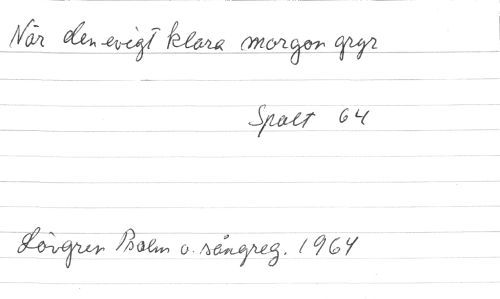 När den evigt klara morgon gryr
Spalt 64
Lövgren Psalm o. sångreg. 1964